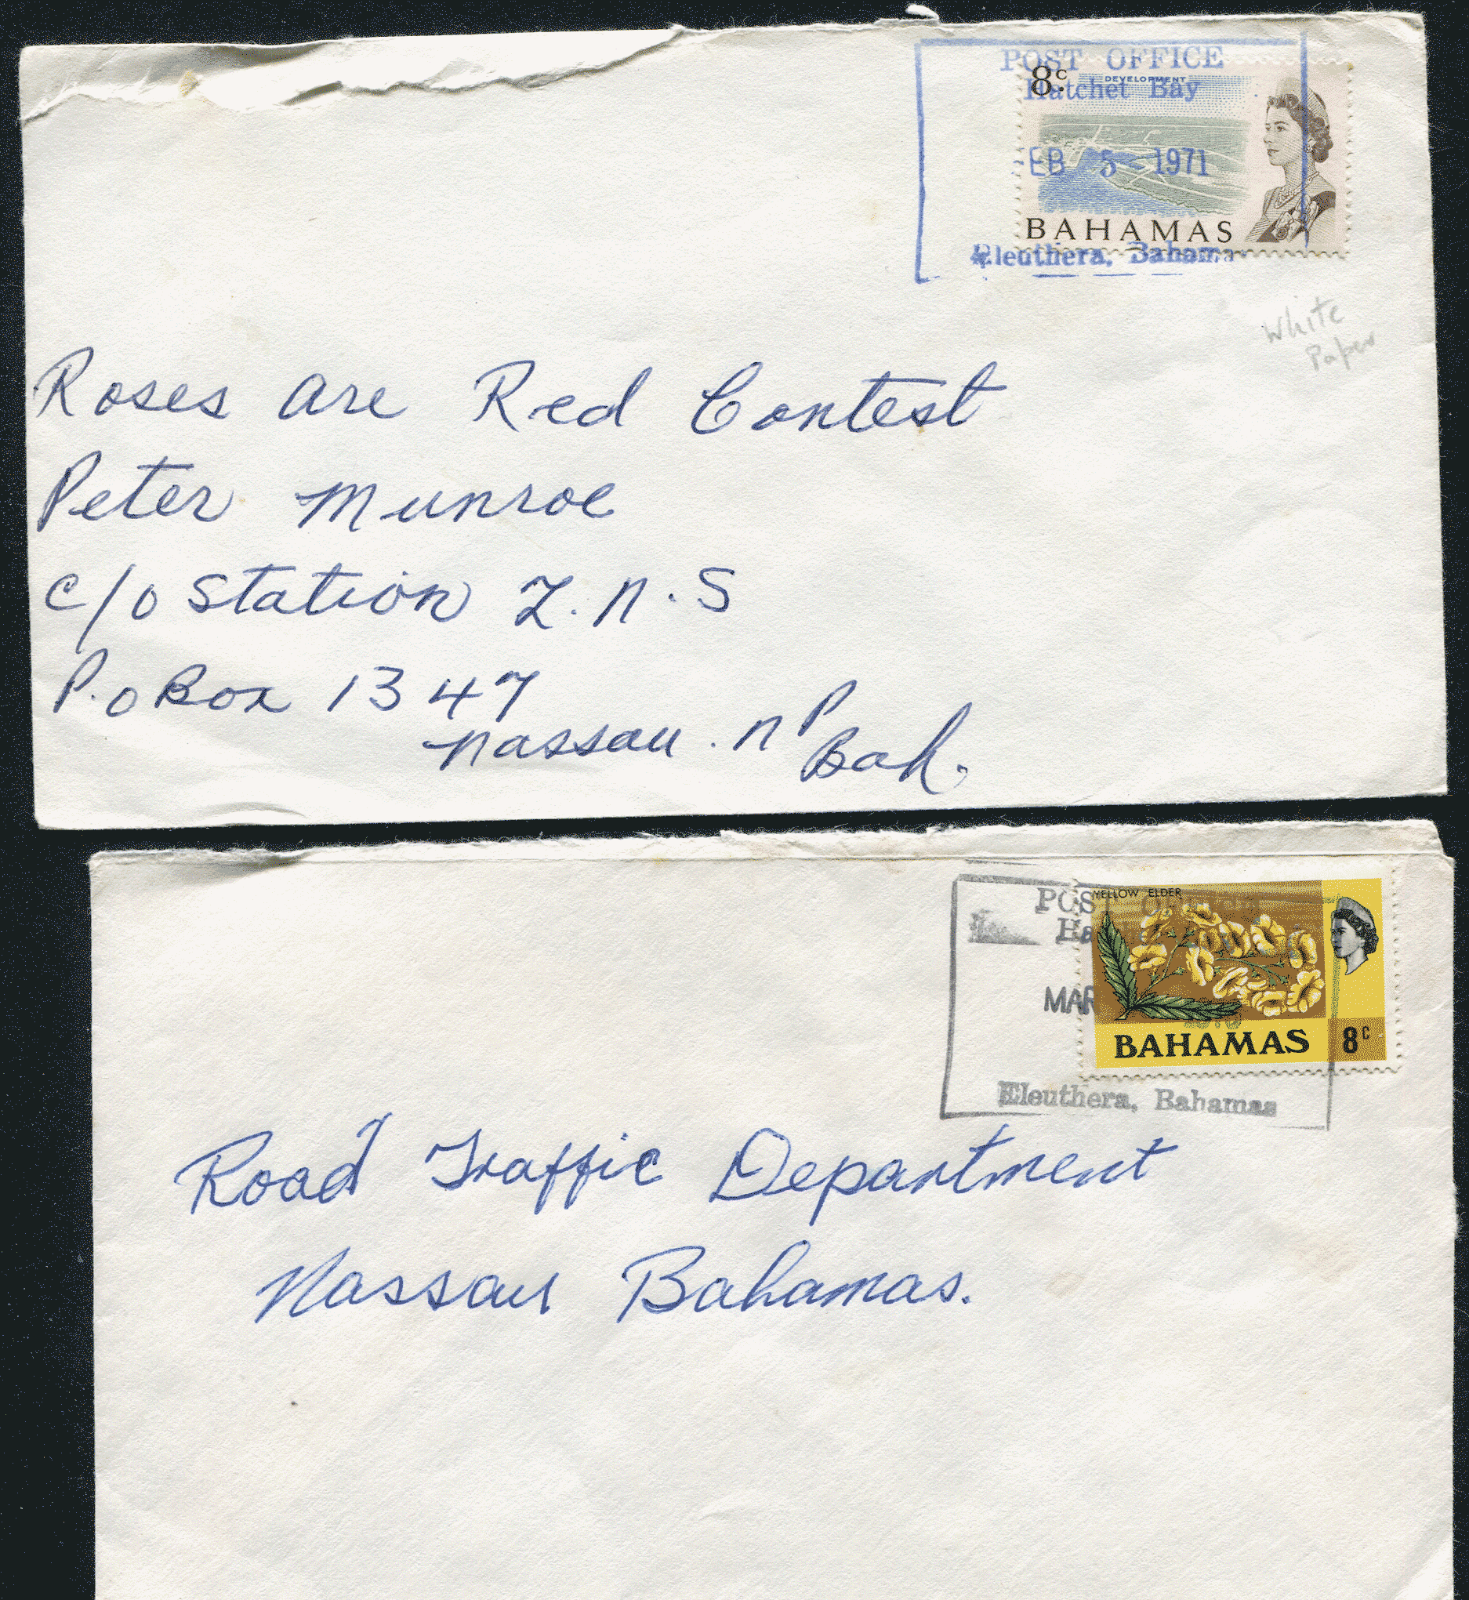 POST OFFICE
8c DEVELOPMENT
Hatchet Bay
EB 5 1971
BAHAMAS
Eleuthera, Bahama
White
Paper
Roses are Red Contest
Peter Munroe
c/o Station Z.N.S
P.O Box 1347
Nassau. NP
Bah.
YELLOW ELDER
POST
MAR
BAHAMAS 8c
Eleuthera, Bahamas
Road Traffic Department
Nassau Bahamas.